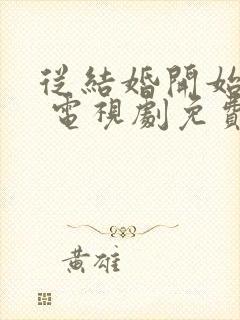 從結婚開始
電視劇免費
黃雄